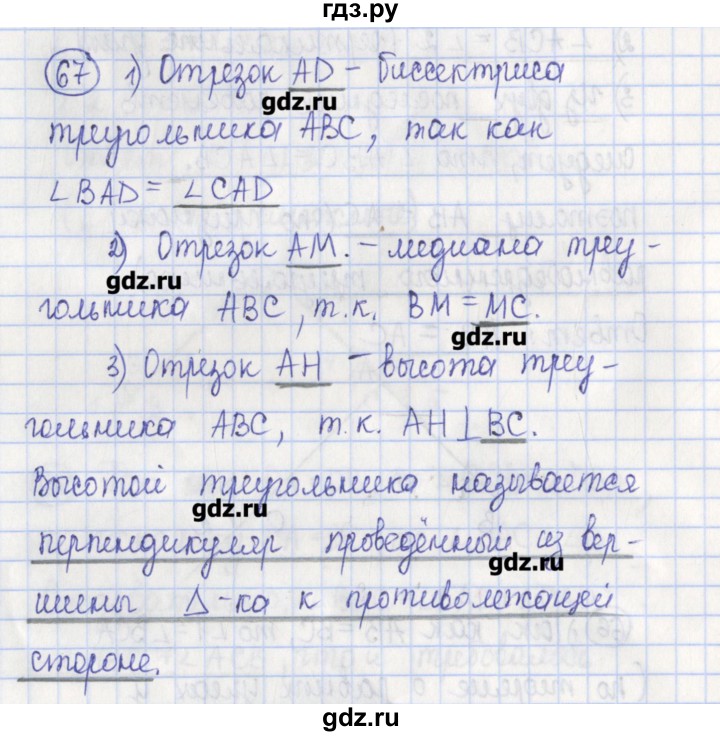 гдз.ру
67 1) Отрезок AD – биссектриса
gdz.ru
треугольника ABC, так как
∠BAD = ∠CAD
2) Отрезок AM. – медиана треу-
gdz.ru
гольника ABC, т.к. BM = MC.
gdz.ru
3) Отрезок AH – высота треу-
гольника ABC, т.к. AH ⊥ BC.
Высотой треугольника называется
gdz.ru
перпендикуляр проведённый из вер-
gdz.ru
шины Δ-ка к противолежащей
стороне.
gdz.ru